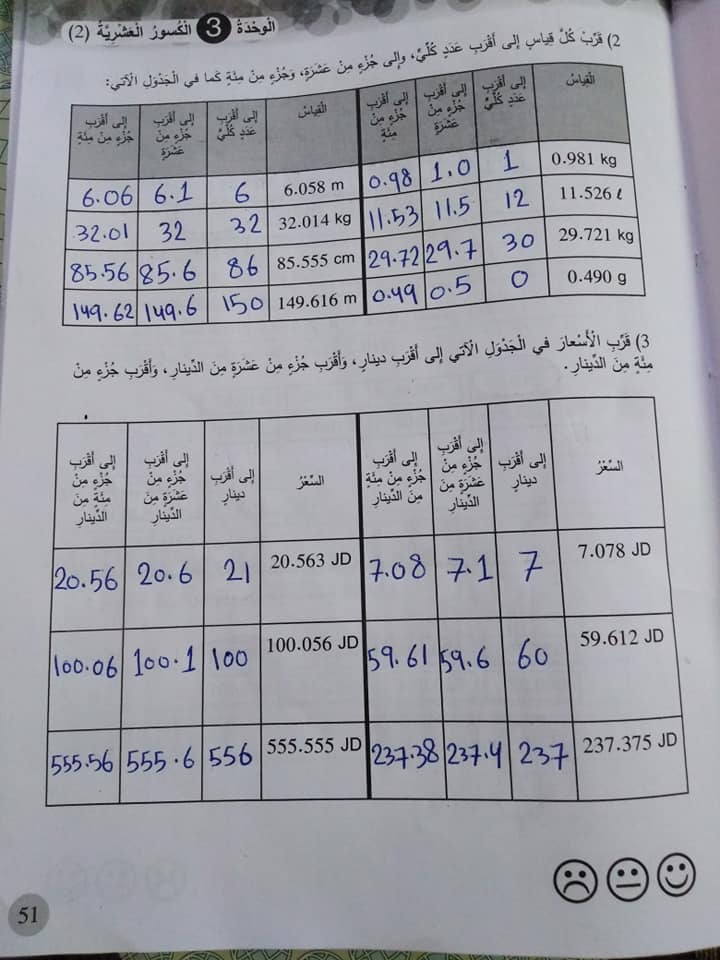 الْوِحْدَةُ 3 الْكُسورُ الْعَشْرِيَّةُ (2)
2) قَرِّبْ كُلَّ قِياسٍ إلى أَقْرَبِ عَدَدٍ كُلِّيٍّ، وإلى جُزْءٍ مِنْ عَشَرَةٍ، وَجُزْءٍ مِنْ مِئَةٍ كَما في الْجَدْوَلِ الْآتي:
الْقِياسُ | إلى أَقْرَبِ عَدَدٍ كُلِّيٍّ | إلى أَقْرَبِ جُزْءٍ مِنْ عَشَرَةٍ | إلى أَقْرَبِ جُزْءٍ مِنْ مِئَةٍ | الْقِياسُ | إلى أَقْرَبِ عَدَدٍ كُلِّيٍّ | إلى أَقْرَبِ جُزْءٍ مِنْ عَشَرَةٍ | إلى أَقْرَبِ جُزْءٍ مِنْ مِئَةٍ
0.981 kg | 1 | 1.0 | 0.98 | 6.058 m | 6 | 6.1 | 6.06
11.526 ℓ | 12 | 11.5 | 11.53 | 32.014 kg | 32 | 32 | 32.01
29.721 kg | 30 | 29.7 | 29.72 | 85.555 cm | 86 | 85.6 | 85.56
0.490 g | 0 | 0.5 | 0.49 | 149.616 m | 150 | 149.6 | 149.62
3) قَرِّبِ الْأَسْعارَ في الْجَدْوَلِ الْآتي إلى أَقْرَبِ دينارٍ، وَأَقْرَبِ جُزْءٍ مِنْ عَشَرَةٍ مِنَ الدِّينارِ، وَأَقْرَبِ جُزْءٍ مِنْ
مِئَةٍ مِنَ الدِّينارِ.
السِّعْرُ | إلى أَقْرَبِ دينارٍ | إلى أَقْرَبِ جُزْءٍ مِنْ عَشَرَةٍ مِنَ الدِّينارِ | إلى أَقْرَبِ جُزْءٍ مِنْ مِئَةٍ مِنَ الدِّينارِ | السِّعْرُ | إلى أَقْرَبِ دينارٍ | إلى أَقْرَبِ جُزْءٍ مِنْ عَشَرَةٍ مِنَ الدِّينارِ | إلى أَقْرَبِ جُزْءٍ مِنْ مِئَةٍ مِنَ الدِّينارِ
7.078 JD | 7 | 7.1 | 7.08 | 20.563 JD | 21 | 20.6 | 20.56
59.612 JD | 60 | 59.6 | 59.61 | 100.056 JD | 100 | 100.1 | 100.06
237.375 JD | 237 | 237.4 | 237.38 | 555.555 JD | 556 | 555.6 | 555.56
51